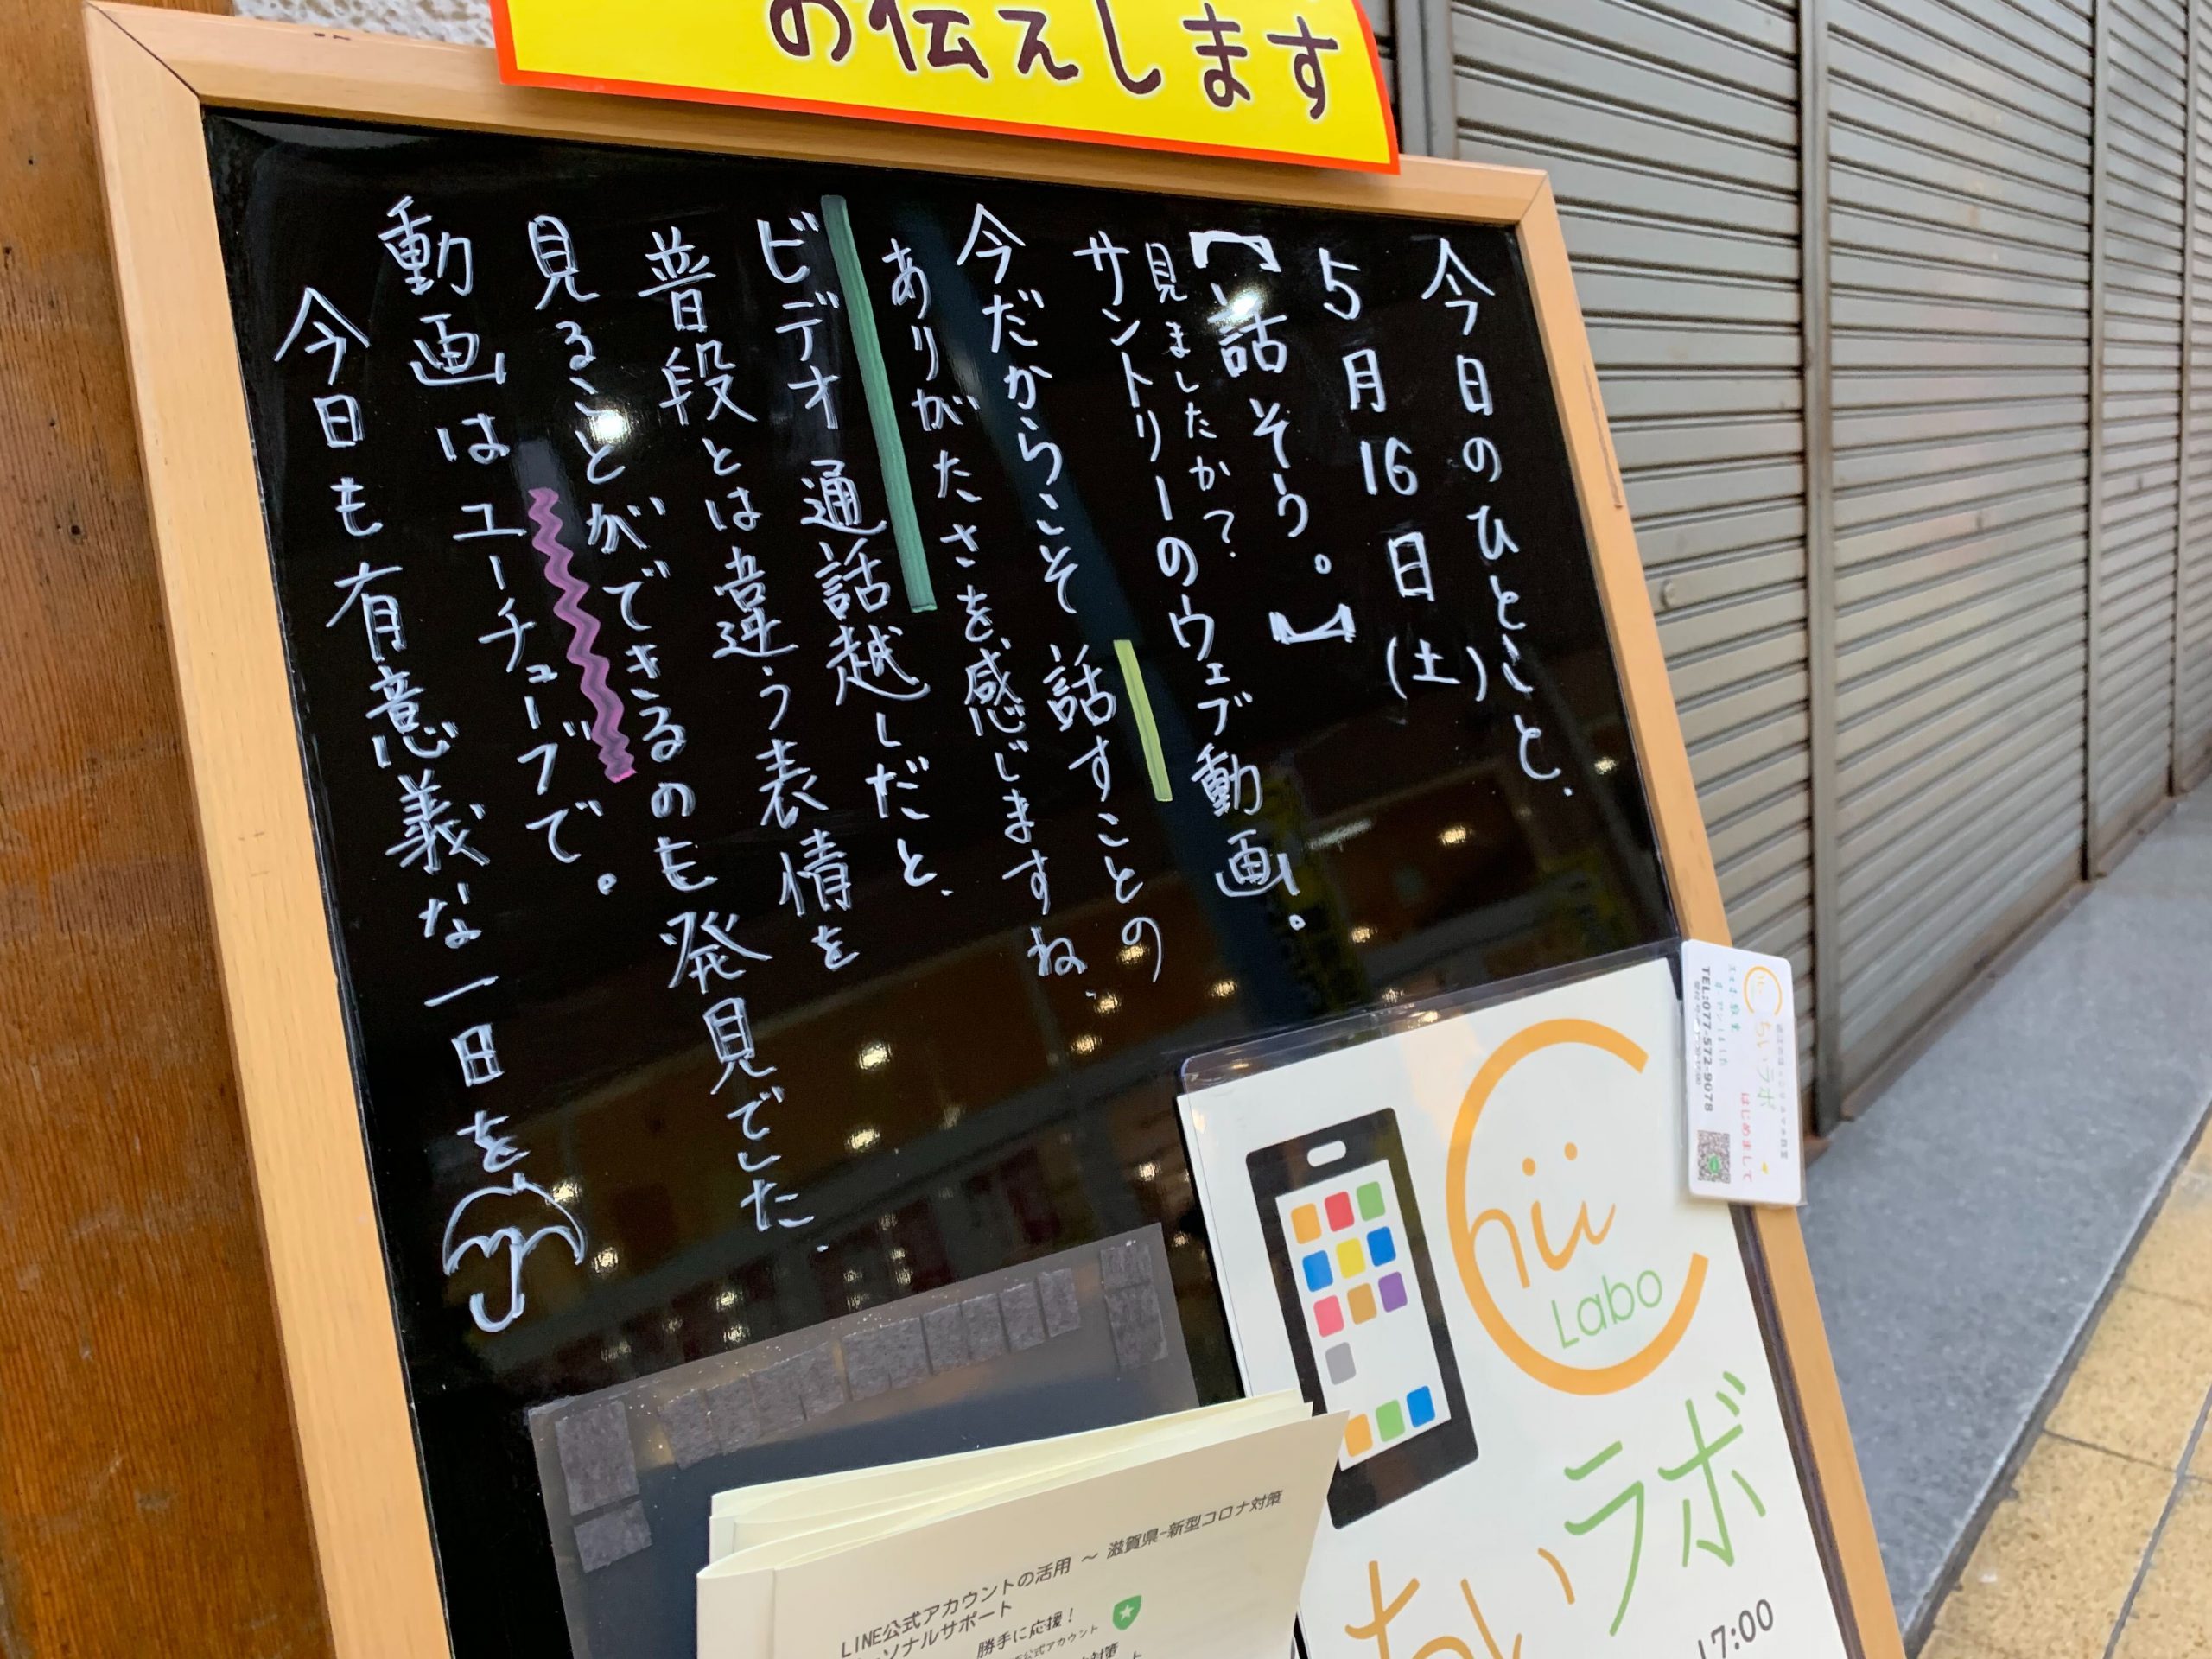 お伝えします
今日のひとこと、
5月16日(土)
【話そう。】
見ましたか?
サントリーのウェブ動画。
今だからこそ 話すことの
ありがたさを感じますね、
ビデオ通話越しだと、
普段とは違う表情を
見ることができるのも発見でした、
動画はユーチューブで。
今日も有意義な一日を、
Chii
Labo
ちいラボ
17:00
ちいラボ
はじめまして
TEL:077-572-9078
LINE公式アカウントの活用 ～ 滋賀県-新型コロナ対策
ーソナルサポート
勝手に応援！
公式アカウント
対策